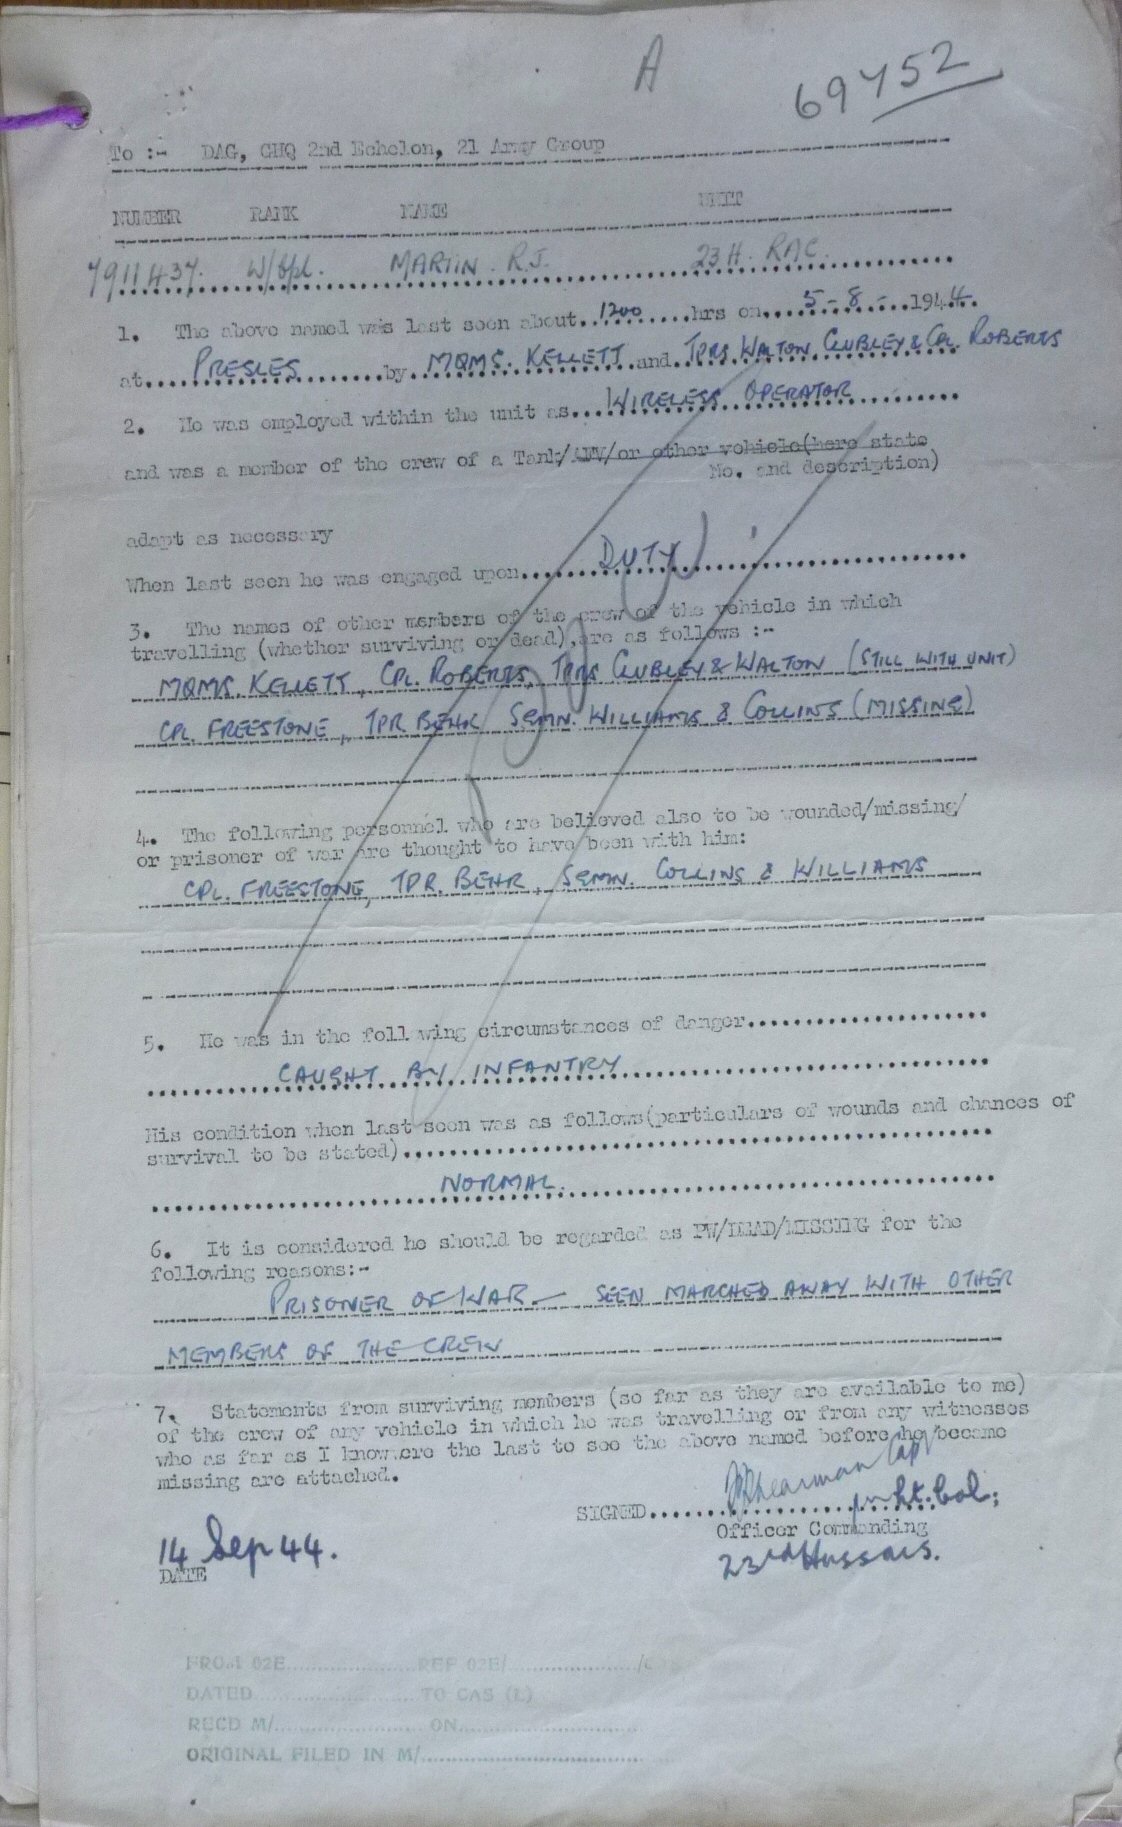 A
69752
To :- DAG, GHQ 2nd Echelon, 21 Army Group
NUMBER RANK NAME UNIT
7911437. W/Cpl. MARTIN. R.J. 23 H. RAC.
1. The above named was last seen about..1200......hrs on....5-8-..1944.
at....PRESLES........by..MQMS. KELLETT.and.TPRS WALTON CLUBLEY & CPL. ROBERTS
2. He was employed within the unit as...WIRELESS OPERATOR..........
and was a member of the crew of a Tank/AFV/or other vehicle(here state
No. and description)
adapt as necessary
When last seen he was engaged upon......DUTY......................
3. The names of other members of the crew of the vehicle in which
travelling (whether surviving or dead),are as follows :-
MQMS. KELLETT, CPL. ROBERTS, TPRS CLUBLEY & WALTON (STILL WITH UNIT)
CPL. FREESTONE, TPR BEHR SGMN. WILLIAMS & COLLINS (MISSING)
4. The following personnel who are believed also to be wounded/missing/
or prisoner of war are thought to have been with him:
CPL. FREESTONE, TPR. BEHR, SGMN. COLLINS & WILLIAMS
5. He was in the foll wing circumstances of danger.....................
CAUGHT BY INFANTRY
His condition when last seen was as follows(particulars of wounds and chances of
survival to be stated)..................................................
NORMAL.
6. It is considered he should be regarded as PW/DEAD/MISSING for the
following reasons:-
PRISONER OF WAR - SEEN MARCHED AWAY WITH OTHER
MEMBERS OF THE CREW
7. Statements from surviving members (so far as they are available to me)
of the crew of any vehicle in which he was travelling or from any witnesses
who as far as I know were the last to see the above named before he became
missing are attached.
Shearman Capt
SIGNED.................... Lt. Col;
Officer Commanding
23rd Hussars.
14 Sep 44.
DATE
FROM 02E....................REF 02E/...................../C
DATED.........................TO CAS (L)
RECD M/.........................ON............................
ORIGINAL FILED IN M/.....................................